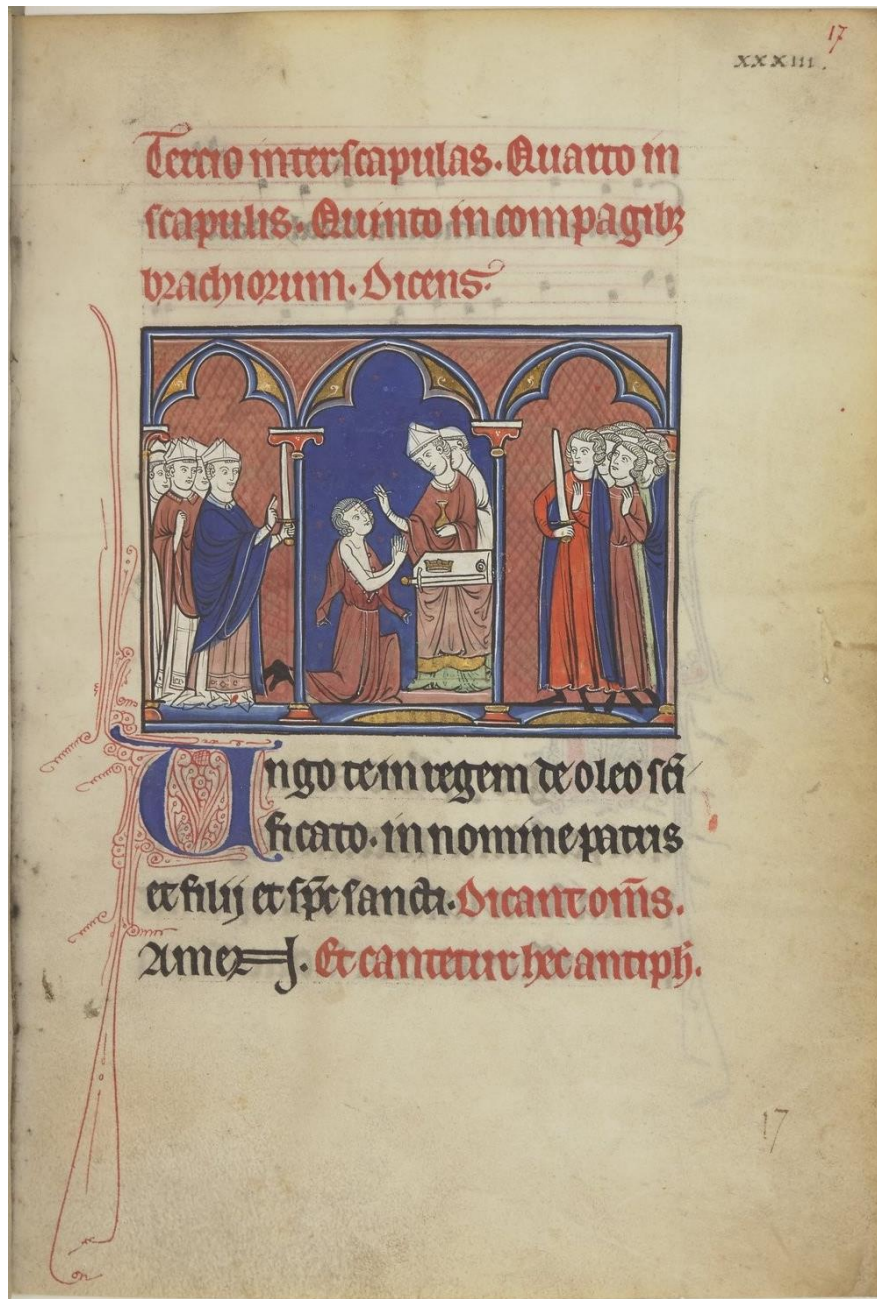 17
xxxiii.
Tercio inter scapulas. Quarto in
scapulis. Quinto in compagibꝫ
brachiorum. Dicens.
Ungo te in regem de oleo scı̄
ficato. in nomine patris
et filij et sp̄c sancti. Dicant om̄s.
Amen. Et cantetur hec antiph̄.
17